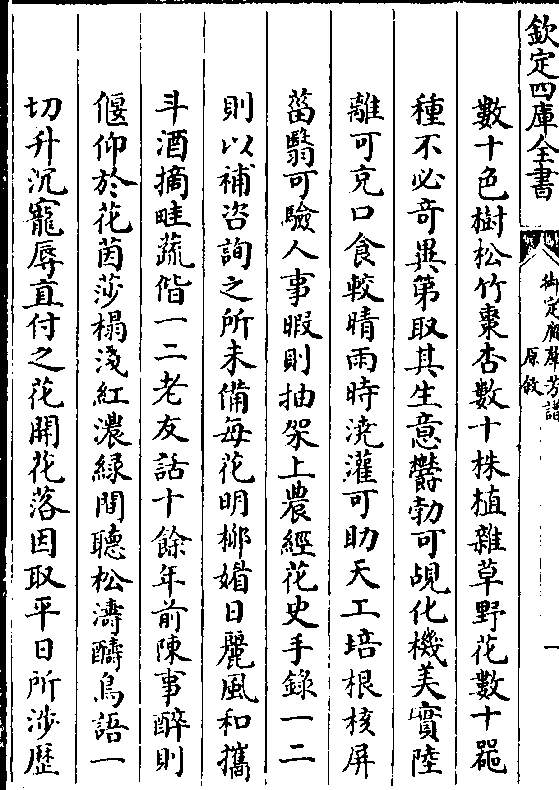 欽定四庫全書
御定廣羣芳譜
原敘
一
數十色樹松竹棗杏數十株植雜草野花數十器
種不必奇異第取其生意欝勃可覘化機美實陸
離可充口食較晴雨時澆灌可助天工培根核屏
菑翳可驗人事暇則抽架上農經花史手錄一二
則以補咨詢之所未備每花明柳媚日麗風和攜
斗酒摘畦蔬偕一二老友話十餘年前陳事醉則
偃仰於花茵莎榻淺紅濃緑間聽松濤酧鳥語一
切升沉寵辱直付之花開花落因取平日所涉歷